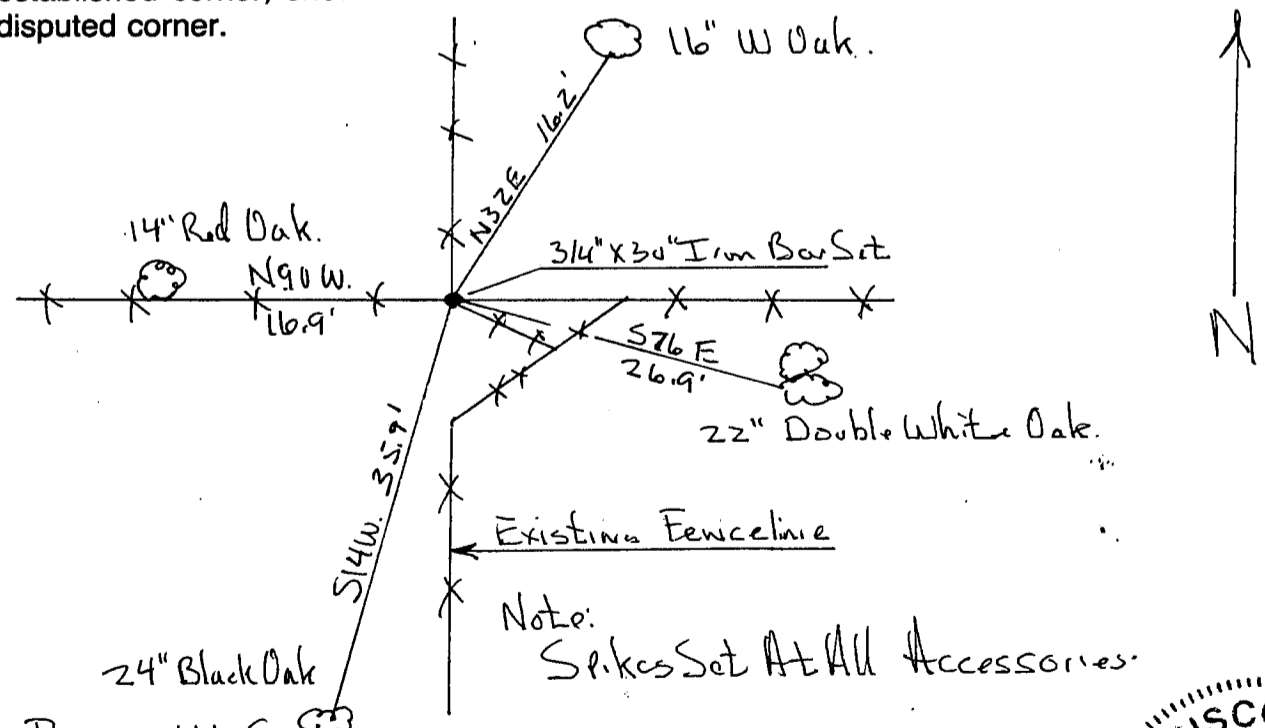 disputed corner.
16" W Oak.
N32E 16.2'
14" Red Oak.
N90W.
16.9'
3/4" X 30" Iron Bar Set
N
S76E
26.9'
22" Double White Oak.
S14W. 35.9'
Existing Fenceline
Note:
Spikes Set At All Accessories.
24" Black Oak